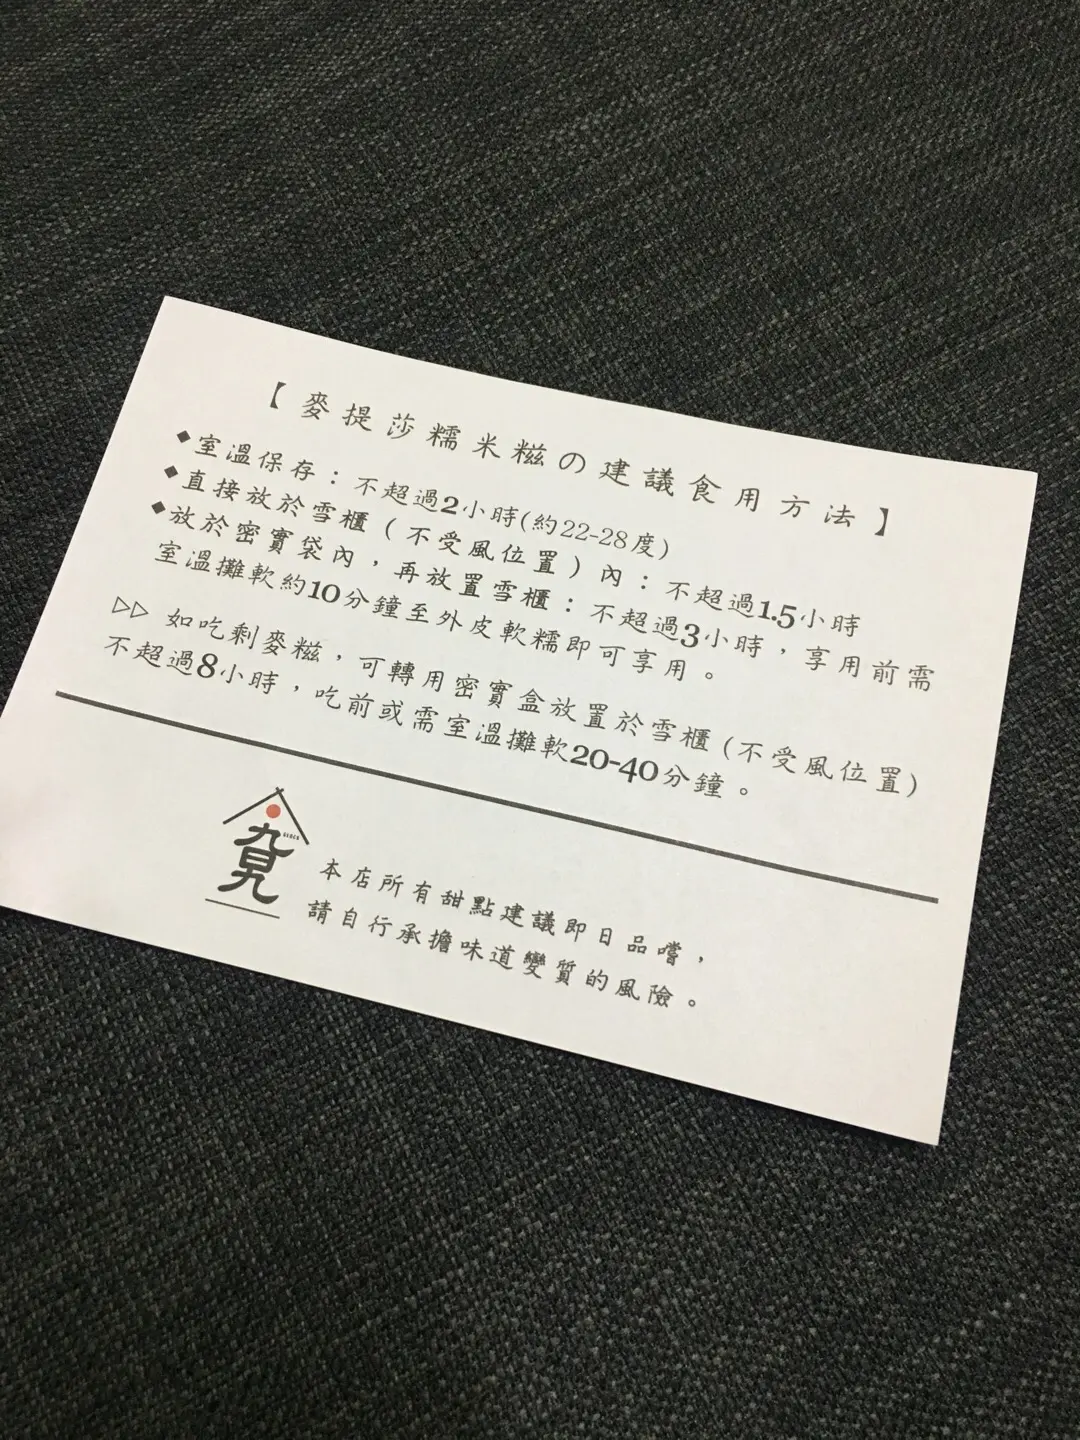 【麥提莎糯米糍の建議食用方法】
◆室溫保存：不超過2小時(約22-28度)
◆直接放於雪櫃(不受風位置)內：不超過1.5小時
◆放於密實袋內，再放置雪櫃：不超過3小時，享用前需
室溫攤軟約10分鐘至外皮軟糯即可享用。
▷▷ 如吃剩麥糍，可轉用密實盒放置於雪櫃(不受風位置)
不超過8小時，吃前或需室溫攤軟20-40分鐘。
本店所有甜點建議即日品嚐，
請自行承擔味道變質的風險。